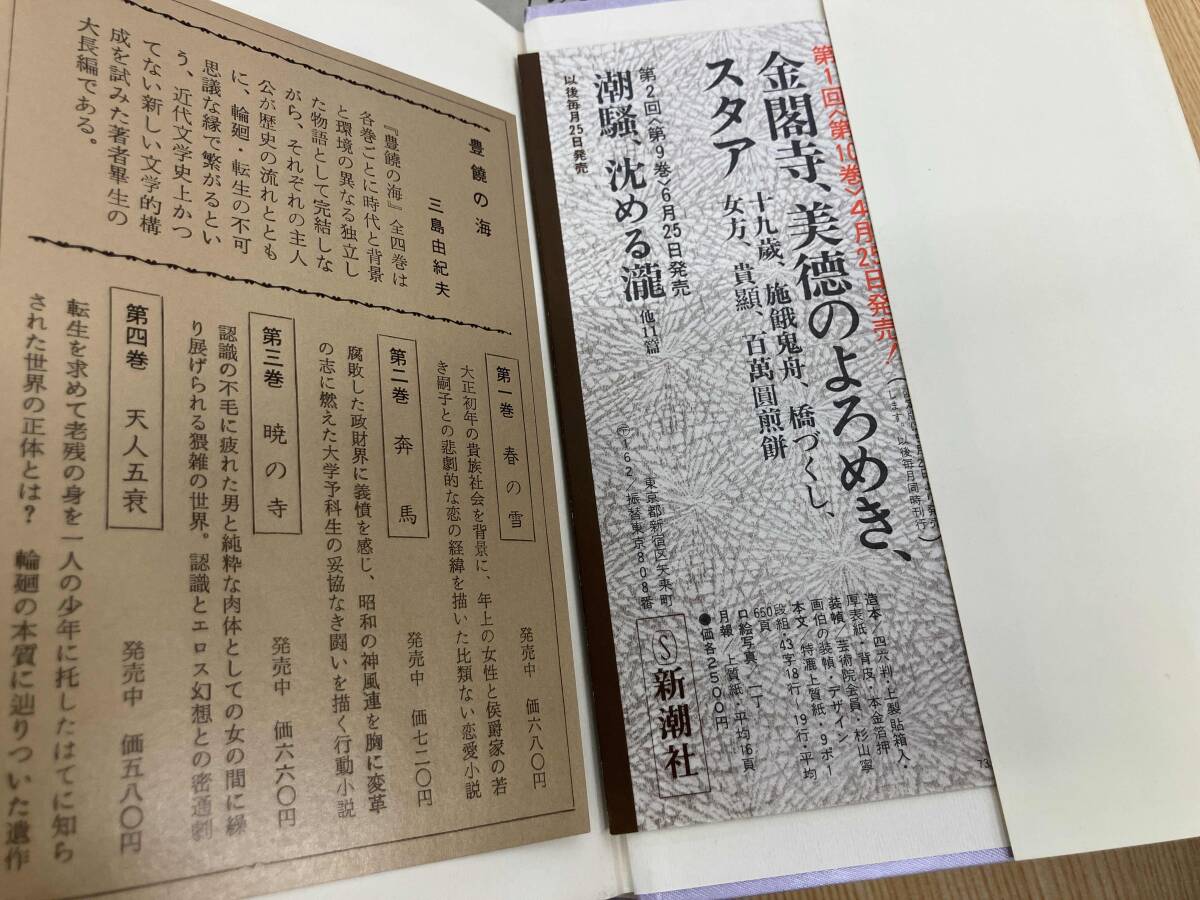 豊饒の海
三島由紀夫
『豊饒の海』全四巻は
各巻ごとに時代と背景
と環境の異なる独立し
た物語として完結しな
がら、それぞれの主人
公が歴史の流れととも
に、輪廻・転生の不可
思議な縁で繋がるとい
う、近代文学史上かつ
てない新しい文学的構
成を試みた著者畢生の
大長編である。
第一巻 春の雪
発売中 価六八〇円
大正初年の貴族社会を背景に、年上の女性と侯爵家の若
き嗣子との悲劇的な恋の経緯を描いた比類ない恋愛小説
第二巻 奔馬
発売中 価七二〇円
腐敗した政財界に義憤を感じ、昭和の神風連を胸に変革
の志に燃えた大学予科生の妥協なき闘いを描く行動小説
第三巻 暁の寺
発売中 価六六〇円
認識の不毛に疲れた男と純粋な肉体としての女の間に繰
り展げられる猥雑の世界。認識とエロス幻想との密通劇
第四巻 天人五衰
発売中 価五八〇円
転生を求めて老残の身を一人の少年に托したはてに知ら
された世界の正体とは? 輪廻の本質に辿りついた遺作
します。以後毎月同時刊行)
第1回〈第10巻〉4月25日発売!
金閣寺、美徳のよろめき、
スタア
十九歳、施餓鬼舟、橋づくし、
女方、貴顕、百萬圓煎餅
第2回〈第9巻〉6月25日発売
潮騒、沈める瀧 他11篇
以後毎月25日発売
造本/四六判・上製貼箱入・
厚表紙/背皮・本金箔押
装幀/芸術院会員・杉山寧
画伯の装幀・デザイン
本文/特漉上質紙・9ポー
段組・43字18行〜19行・平均
650頁
口絵写真/一丁
月報/上質紙・平均16頁
●価各2500円
〒162/東京都新宿区矢来町
振替東京808番
S新潮社
73